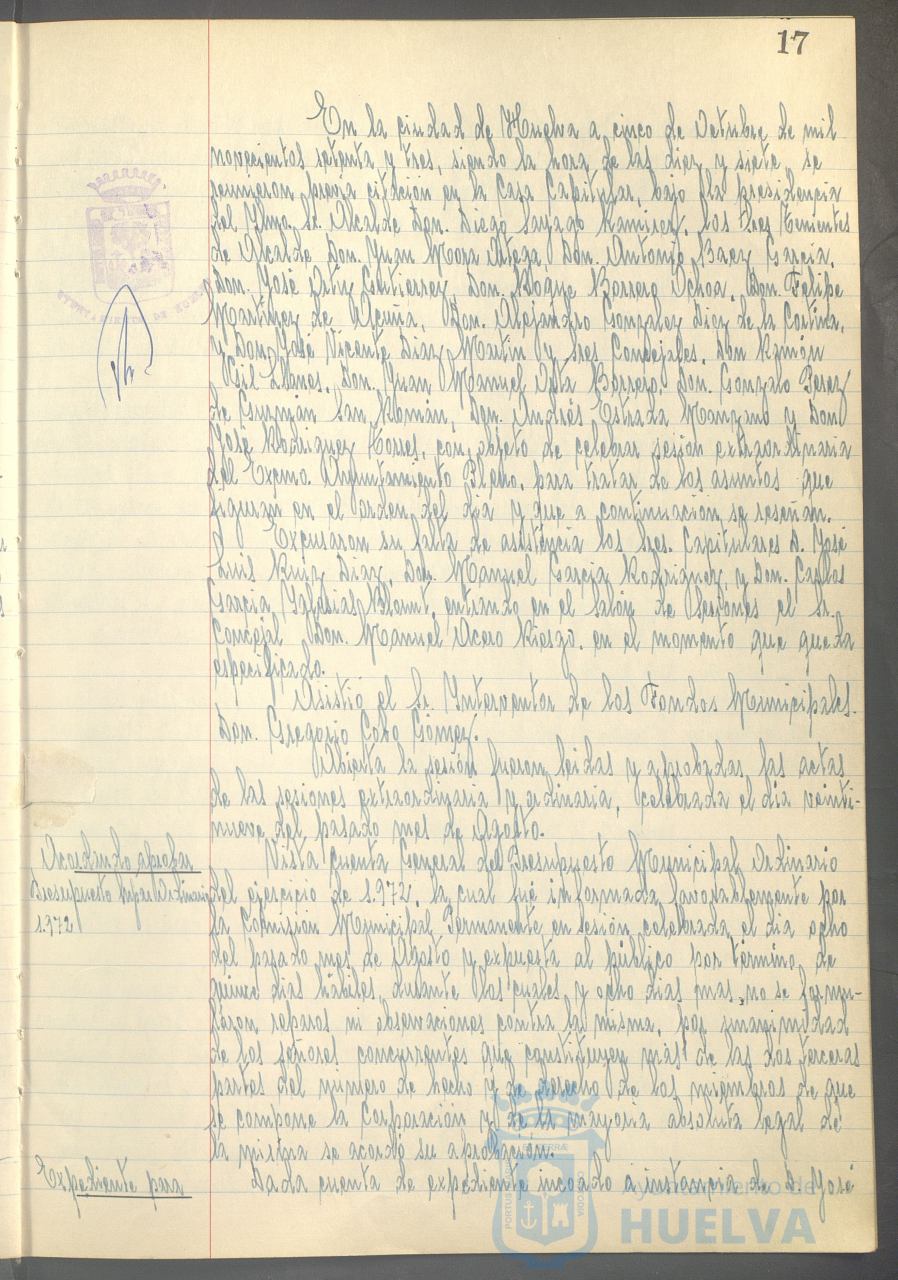 17
En la ciudad de Huelva a cinco de Octubre de mil
novecientos setenta y tres, siendo la hora de las diez y siete se
reunieron previa citación en la Casa Capitular, bajo la presidencia
del Ylmo. Sr. Alcalde Don. Diego Sayago Ramirez, los Sres Tenientes
de Alcalde Don. Juan Mora Ortega, Don. Antonio Baez Garcia,
Don. José Ortiz Gutierrez, Don. Roque Borrero Ochoa, Don. Felipe
Martinez de Acuña, Don. Alejandro Gonzalez Diez de la Cortina,
y Don. José Vicente Diaz Martin y Sres Concejales, Don Ramón
Llanes, Don. Juan Manuel Borrero, Don. Gonzalo Perez
de Guzman San Román, Don. Andrés Estrada Manzano y Don
José Rodriguez Torres, con objeto de celebrar sesión extraordinaria
del Excmo. Ayuntamiento Pleno, para tratar de los asuntos que
figuran en el orden del dia y que a continuacion se reseñan.
Excusaron su falta de asistencia los Sres. Capitulares D. José
Luis Ruiz Diaz, Don. Manuel Garcia Rodriguez, y Don. Carlos
Garcia Blount, entrando en el Salón de Sesiones el Sr.
Concejal Don. Manuel Acero Riesgo, en el momento que queda
especificado.
Asistió el Sr. Ynterventor de los Fondos Municipales.
Don. Gregorio Cobo Gómez.
Abierta la sesión fueron leidas y aprobadas las actas
de las sesiones extraordinaria y ordinaria, celebrada el dia veinti-
nueve del pasado mes de Agosto.
Acordando aprobar
Presupuesto Ordinario
1.972
Vista cuenta General del Presupuesto Municipal Ordinario
del ejercicio de 1.972, la cual fué informada favorablemente por
la Comision Municipal Permanente en sesión celebrada el dia ocho
del pasado mes de Agosto y expuesta al público por término de
quince dias hábiles, durante los cuales, y ocho dias mas, no se formu-
laron reparos ni observaciones contra la misma, por unanimidad
de los señores concurrentes que constituyen más de las dos terceras
partes del número de hecho y de derecho de los miembros de que
se compone la Corporación y de la mayoria absoluta legal de
la misma se acordó su aprobación.
Expediente para
Dada cuenta de expediente incoado a instancia de D. José
Ayuntamiento de
HUELVA